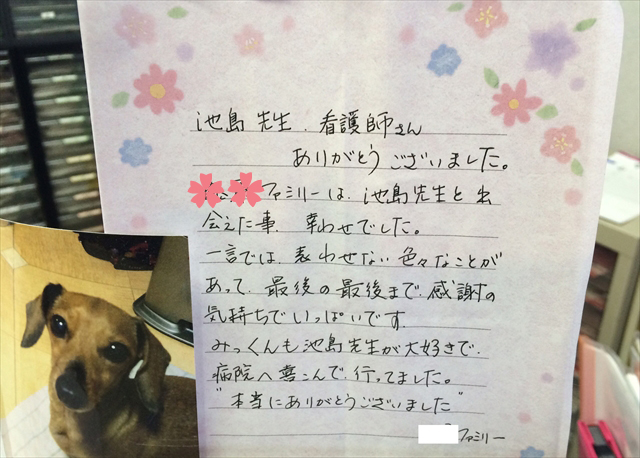 池島先生.看護師さん
ありがとうございました。
ファミリーは、池島先生と出
会えた事、幸わせでした。
一言では、表わせない色々なことが
あって、最後の最後まで、感謝の
気持ちでいっぱいです.
みっくんも池島先生が大好きで、
病院へ喜こんで、行ってました。
"本当にありがとうございました"
ファミリー